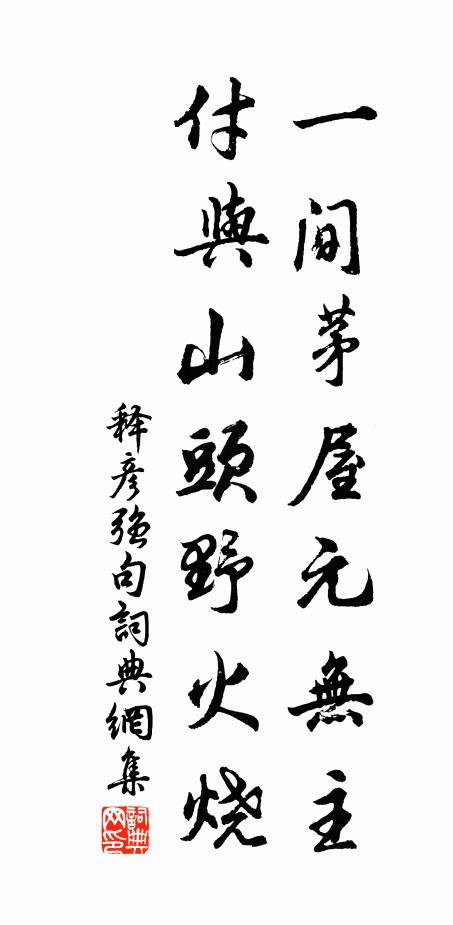 一间茅屋元無主
付與山頭野火烧
释彦强句詞典網集
詞典网印